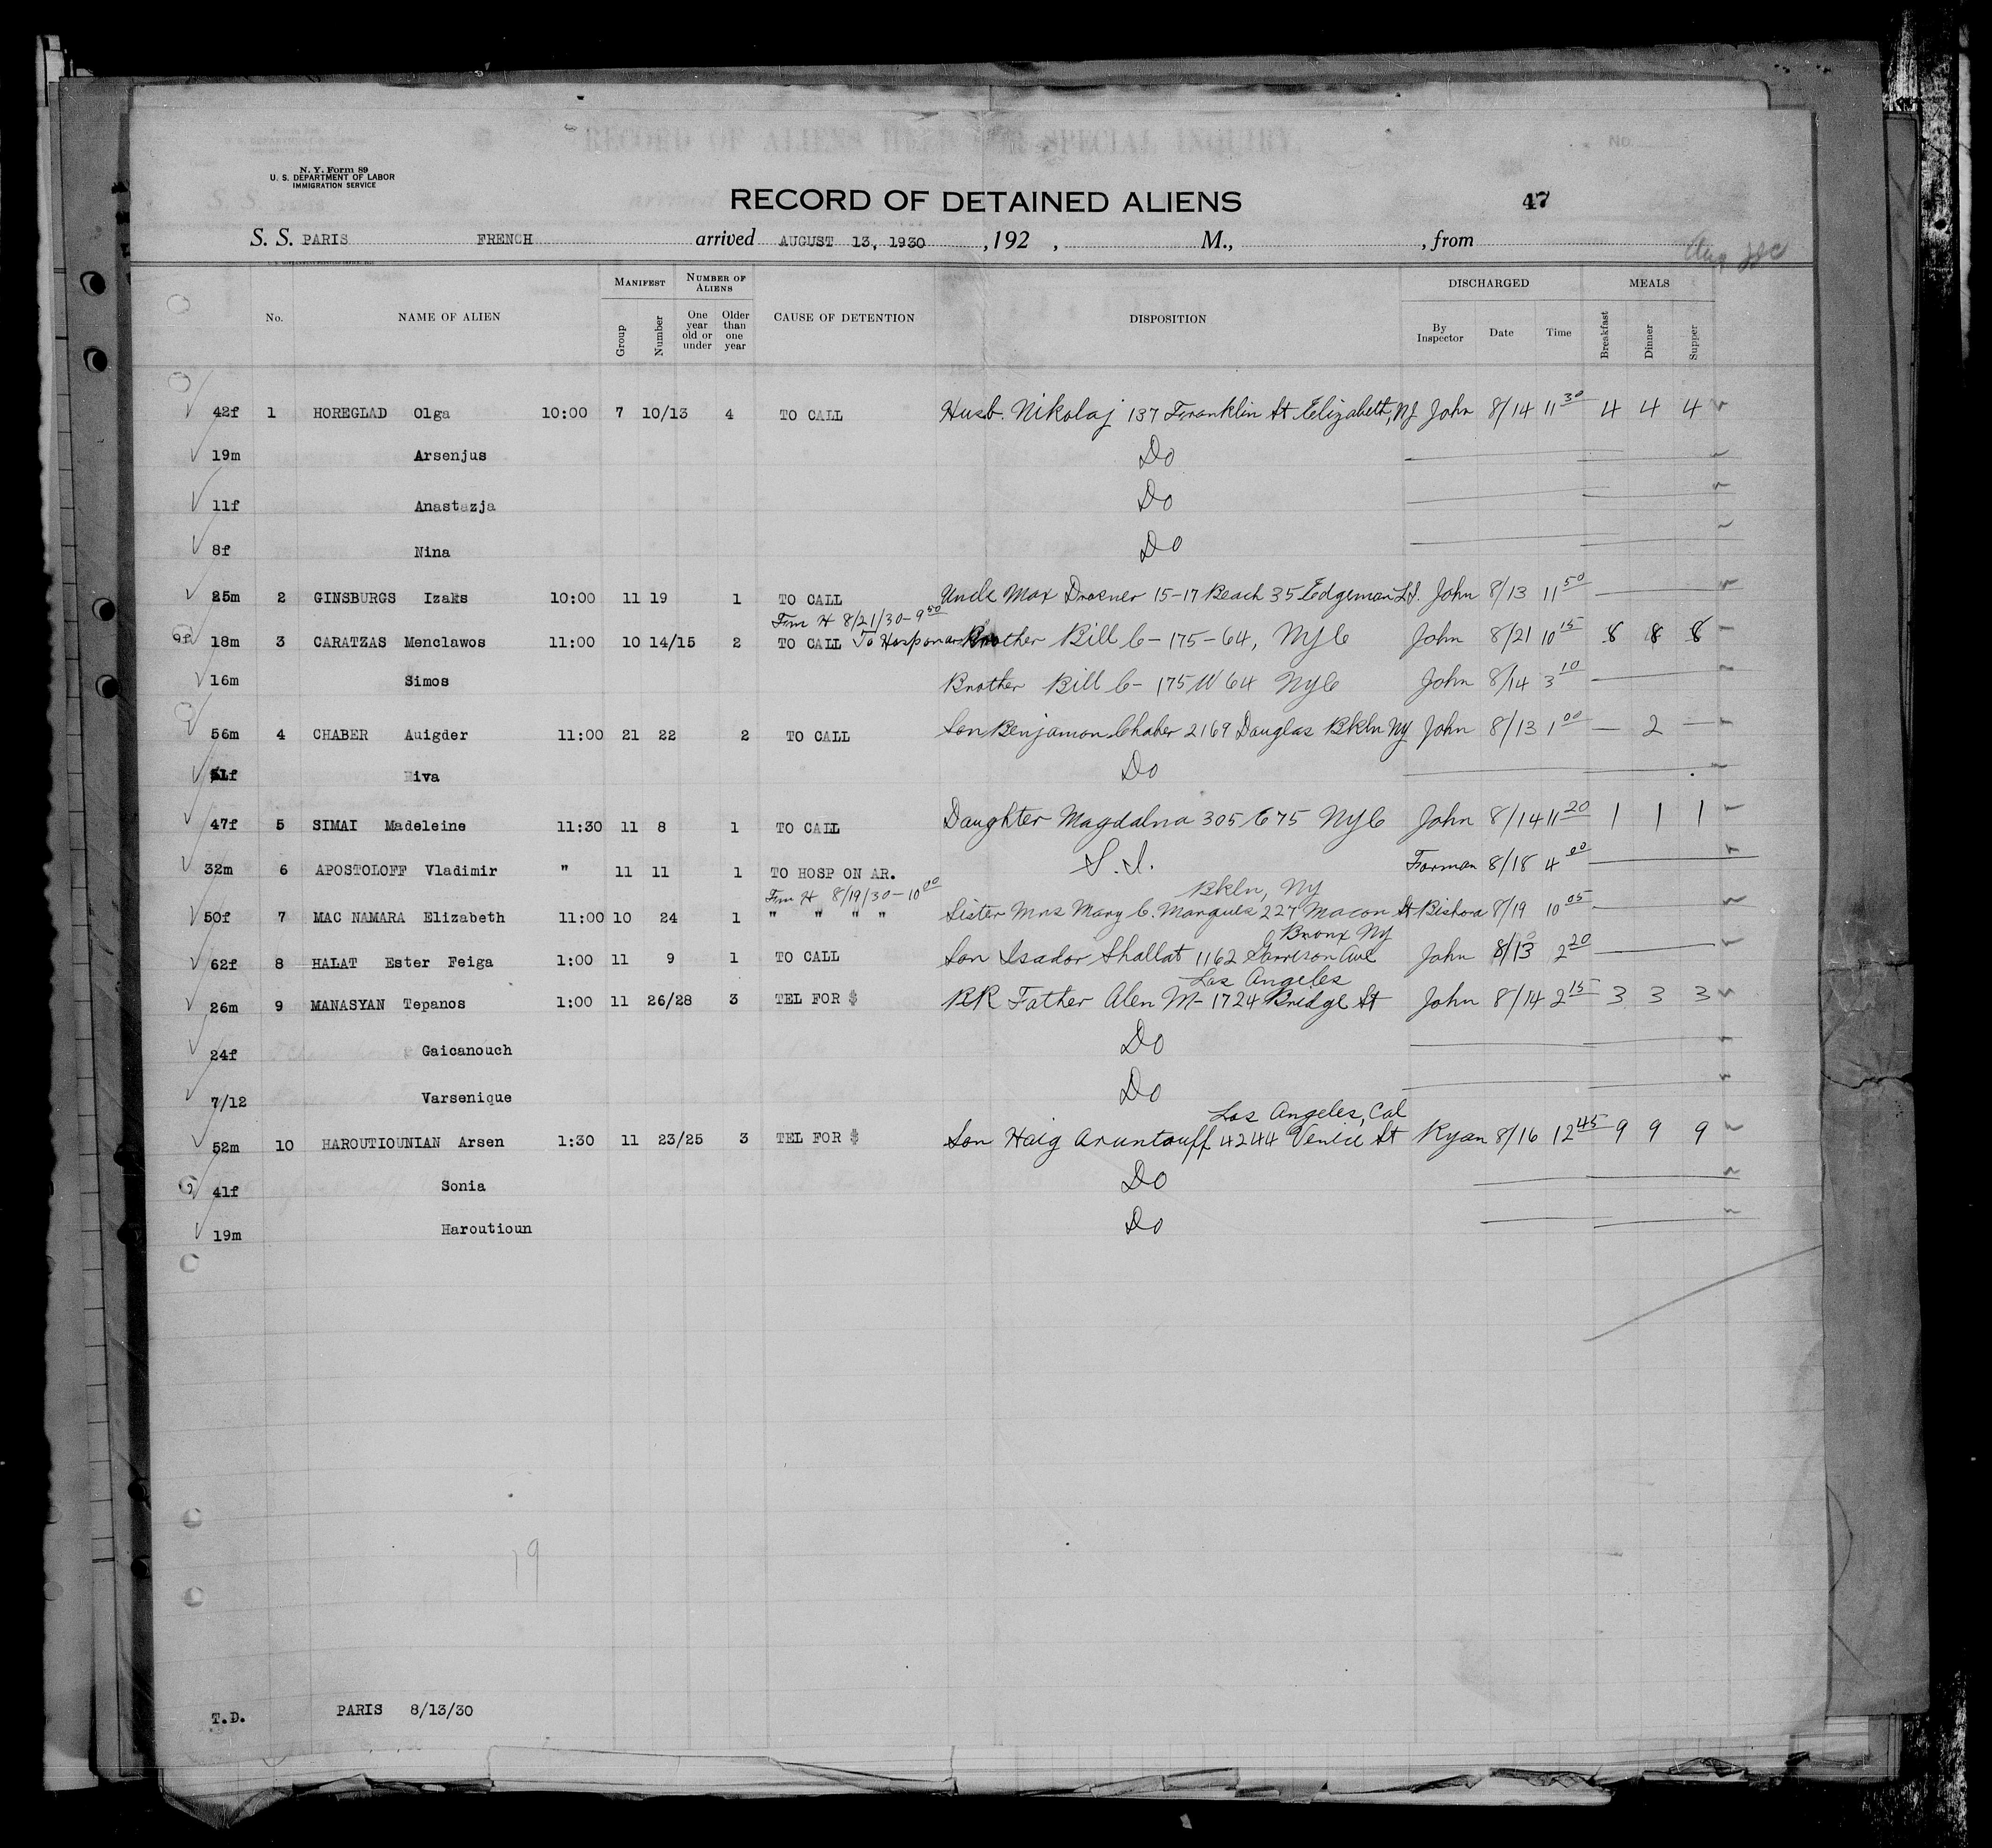 N. Y. Form 89
U. S. DEPARTMENT OF LABOR
IMMIGRATION SERVICE
RECORD OF ALIENS HELD FOR SPECIAL INQUIRY.
No.
RECORD OF DETAINED ALIENS 47
S. S. PARIS FRENCH arrived AUGUST 13, 1930, 192 , M., , from
No. NAME OF ALIEN MANIFEST Group Number NUMBER OF ALIENS One year old or under Older than one year CAUSE OF DETENTION DISPOSITION DISCHARGED By Inspector Date Time MEALS Breakfast Dinner Supper
42f 1 HOREGLAD Olga 10:00 7 10/13 4 TO CALL Husb. Nikolaj 137 Franklin St Elizabeth, NJ John 8/14 11 30 4 4 4
19m Arsenjus Do
11f Anastazja Do
8f Nina Do
25m 2 GINSBURGS Izaks 10:00 11 19 1 TO CALL Uncle Max 15-17 Beach 35 L.I. John 8/13 11 50
Frm H 8/21/30-9 50
9f 18m 3 CARATZAS Menclawos 11:00 10 14/15 2 TO CALL To Hosp on ar Brother Bill C- 175-64, NYC John 8/21 10 15 8 8 8
16m Simos Brother Bill C- 175 W 64 NYC John 8/14 3 10
56m 4 CHABER Auigder 11:00 21 22 2 TO CALL Son Benjamon Chaber 2169 Douglas Bkln NY John 8/13 1 00 — 2 —
51f Riva Do
47f 5 SIMAI Madeleine 11:30 11 8 1 TO CALL Daughter Magdalna 305 E 75 NYC John 8/14 11 20 1 1 1
32m 6 APOSTOLOFF Vladimir " 11 11 1 TO HOSP ON AR. S.I. Forman 8/18 4 00
Frm H 8/19/30-10 00 Bkln, NY
50f 7 MAC NAMARA Elizabeth 11:00 10 24 1 " " " " Sister Mrs Mary C. Marques 227 Macon St 8/19 10 05
Bronx NY
62f 8 HALAT Ester Feiga 1:00 11 9 1 TO CALL Son Isador Shallat 1162 Garrison Ave John 8/13 2 20
Los Angeles
26m 9 MANASYAN Tepanos 1:00 11 26/28 3 TEL FOR $ RR Father Alen M- 1724 Bridge St John 8/14 2 15 3 3 3
24f Gaicanouch Do
7/12 Varsenique Do
Los Angeles, Cal
52m 10 HAROUTIOUNIAN Arsen 1:30 11 23/25 3 TEL FOR $ Son Haig Aruntouff 4244 Venice St Ryan 8/16 12 45 9 9 9
41f Sonia Do
19m Haroutioun Do
19
T.D. PARIS 8/13/30